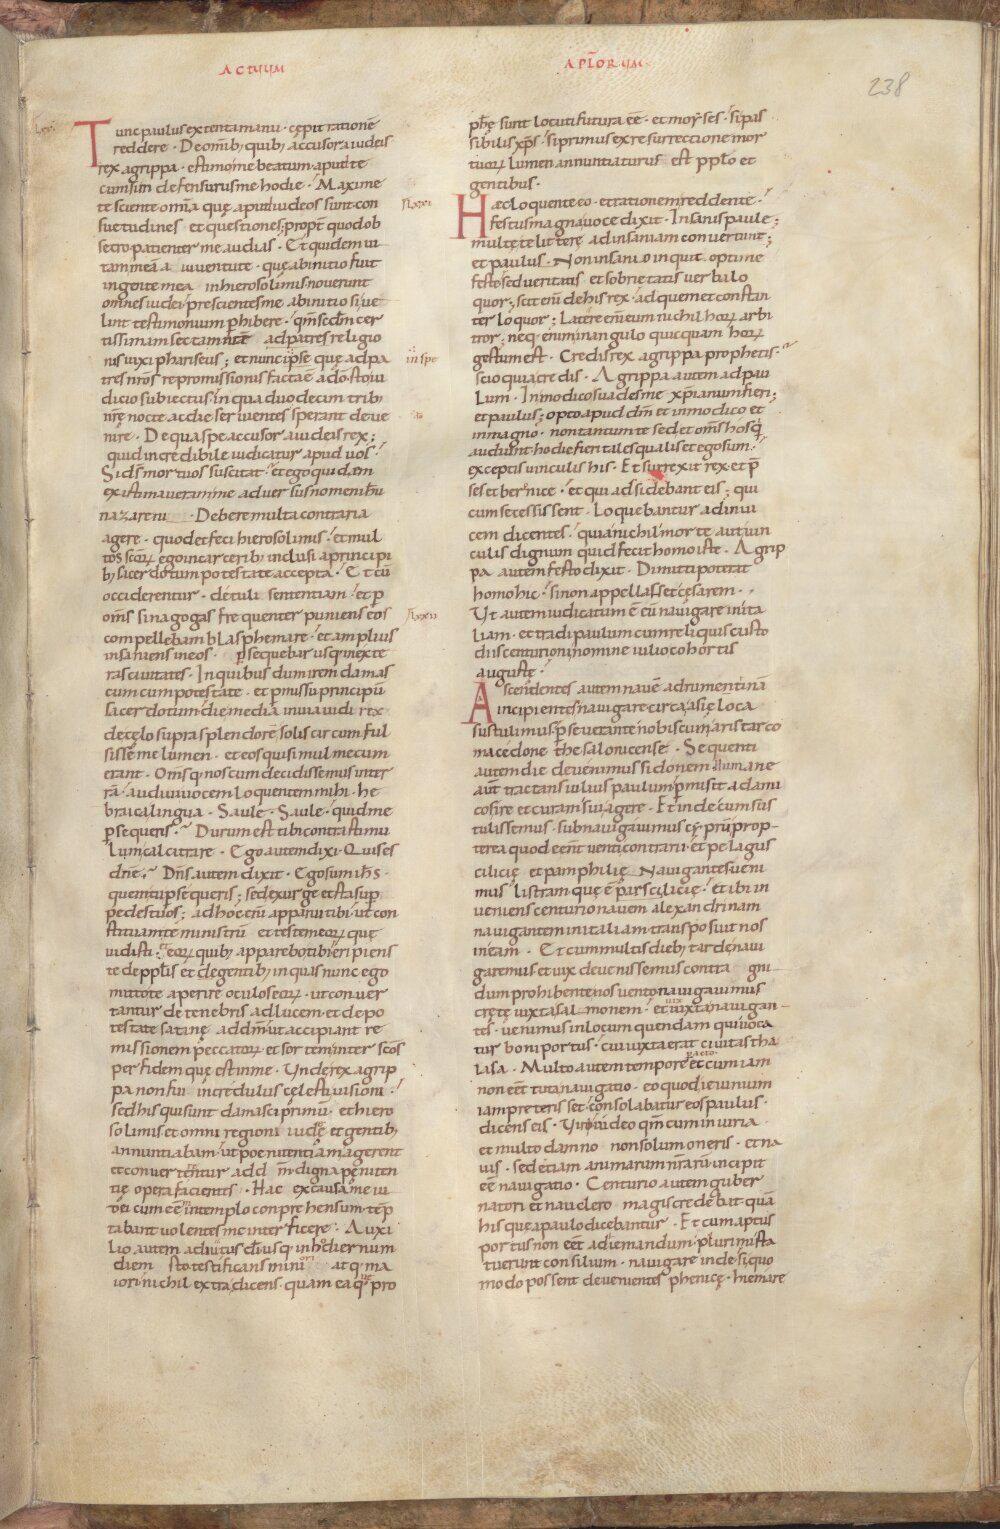 ACTUUM
APL̄ORUM
238
Tunc paulus extenta manu · cępit rationē
reddere · De omīb; quib; accusor a iudeis
rex agrippa · estimo me beatum apud te
cum sim defensurus me hodie · Maxime
te sciente om̄a quę apud iudeos sunt con
suetudines et questiones; propt̄ quod ob
secro patienter me audias · Et quidem ui
tam meā a iuuentute · quę ab initio fuit
in gente mea in hierosolimis nouerunt
omnes iudei prescientes me ab initio si ue
lint testimonium p̱hibere · qm̄ scd̄m cer
tissimam sectam nr̄ae ad patres religio
nis uixi phariseus; et nunc ipse quę ad pa
in spe
tres nr̄os repromissionis facta ē a dō sto iu
dicio subiectus in qua duodecim trib;
nr̄ę nocte ac die seruientes sperant deue
nire · De qua spe accusor a iudeis rex;
quid incredibile iudicatur apud uos ·
Si ds̄ mortuos suscitat · et ego quidam
existimaueram me aduersus nomen ih̄u
nazareni Debere multa contraria
agere · quod et feci hierosolimis · et mul
tos scōꝝ ego in carcerib; inclusi a principi
b; sacerdotum potestate accepta · Et cū
occiderentur · detuli sententiam · et p̱
om̄s sinagogas frequenter puniens eos
compellebam blasphemare · et amplius
insaniens in eos · p̱sequebar usq; in exte
ras ciuitates · In quibus dum irem damas
cum cum potestate · et p̱missu principū
sacerdotum · die media in uia uidi rex
de cęlo supra splendorē solis circumful
sisse me lumen · et eos qui simul mecum
erant · Om̄sq; nos cum decidissemus in ter
rā · audiui uocem loquentem mihi · he
braica lingua · Saule · Saule · quid me
p̱sequeris · Durum est tibi contra stimu
lum calcitrare · Ego autem dixi · Quis es
dn̄e · Dn̄s autem dixit · Ego sum ih̄s ·
quem tu p̱sequeris; sed exurge et sta sup̱
pedes tuos; ad hoc eni apparui tibi · ut con
stituam te ministrū et testem eoꝝ quę
uidisti · et eoꝝ quib; apparebo tibi eripiens
te de ppl̄is et de gentib; in quas nunc ego
mitto te aperire oculos eoꝝ · ut conuer
tantur de tenebris ad lucem et de po
testate satanę ad dm̄ ut accipiant re
missionem peccatoꝝ et sortem inter scōs
per fidem quę est in me · Unde rex agrip
pa non fui incredulus cęlesti uisioni ·
sed his qui sunt damasci primū · et hiero
solimis et omni regioni iudeę et gentib;
annuntiabam · ut poenitentiam agerent
et conuerterentur ad dm̄ digna pęniten
tię opera facientes · Hac ex causa me iu
dei cum eēm in templo conprehensum temp
tabant uolentes me interficere · Auxi
lio autem adiutus dī usq; in hodiernum
diem sto testificans minori atq; ma
iori nichil extra dicens quam ea quę pro
ph̄ę sunt locuti futura eē · et moyses · si pas
sibilis xp̄s · si primus ex resurrectione mor
tuoꝝ lumen annuntiaturus est pplo et
gentibus ·
Haec loquente eo · et rationem reddente ·
festus magna uoce dixit · Insanis paule;
multę te litterę ad insaniam conuertunt;
et paulus · Non insanio inquit optime
feste sed ueritatis et sobrietatis uerba lo
quor; scit eni de his rex · ad quem et constan
ter loquor; Latere eni eum nichil hoꝝ arbi
tror; neq; eni in angulo quicquam hoꝝ
gestum est · Credis rex agrippa prophetis ·
scio quia credis · Agrippa autem ad pau
lum · In modico suades me xp̄ianum fieri;
et paulus; opto apud dm̄ et in modico et
in magno · non tantum te sed et om̄s hos q̇
audiunt hodie fieri tales qualis et ego sum ·
exceptis uinculis his · Et surrexit rex et p̄
ses et bernice · et qui adsidebant eis; qui
cum secessissent · Loquebantur ad inui
cem dicentes · quia nichil morte aut uin
culis dignum quid fecit homo iste · Agrip
pa autem festo dixit · Dimitti poterat
homo hic · si non appellasset cesarem · ·
Ut autem iudicatum ē eū nauigare in ita
liam · et tradi paulum cum reliquis custo
diis centurioni nomine iulio cohortis
augustę ·
Ascendentes autem nauē adrumentinā
incipientes nauigare circa asię loca
sustulimus p̱seuerante nobiscum aristarco
macedone thesalonicense · Sequenti
autem die deuenimus sidonem humane
aut̄ tractans iulius paulum p̱misit ad ami
cos ire et curam sui agere · Et inde cum sus
tulissemus · subnauigauimus cyprum prop
terea quod eent uenti contrarii · et pelagus
cilicię et pamphilię Nauigantes ueni
mus listram quę ē pars cilicię · et ibi in
ueniens centurio nauem alexandrinam
nauigantem in italiam transposuit nos
in eam · Et cum multis dieb; tarde naui
garemus et uix deuenissemus contra gni
dum prohibente nos uento nauigauimus
cretę iuxta salmonem · et uix iuxta nauigan
tes · uenimus in locum quendam qui uoca
tur boni portus · cui iuxta erat ciuitas tha
lasa · Multo autem tempore peracto et cum iam
non eēt tuta nauigatio · eo quod ieiunium
iam preterisset · consolabatur eos paulus ·
dicens eis · Uiri uideo qm̄ cum iniuria
et multo damno non solum oneris · et na
uis · sed etiam animarum nr̄arū incipit
eē nauigatio · Centurio autem guber
natori et nauclero magis credebat quā
his quę a paulo dicebantur · Et cum aptus
portus non eēt ad iemandum · plurimi sta
tuerunt consilium · nauigare inde · si quo
modo possent deuenientes phenicę · hiemare